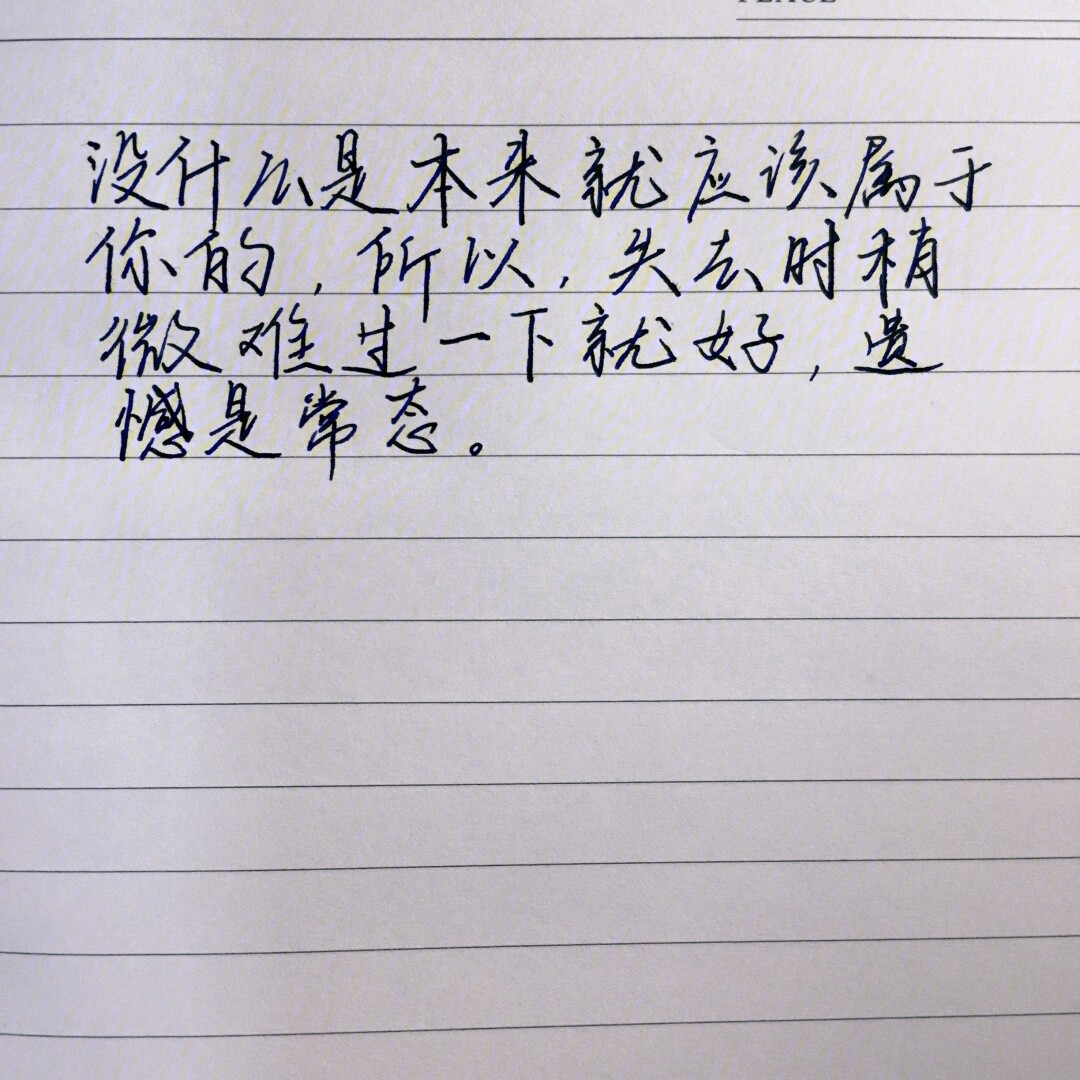 PLACE
没什么是本来就应该属于
你的，所以，失去时稍
微难过一下就好，遗
憾是常态。